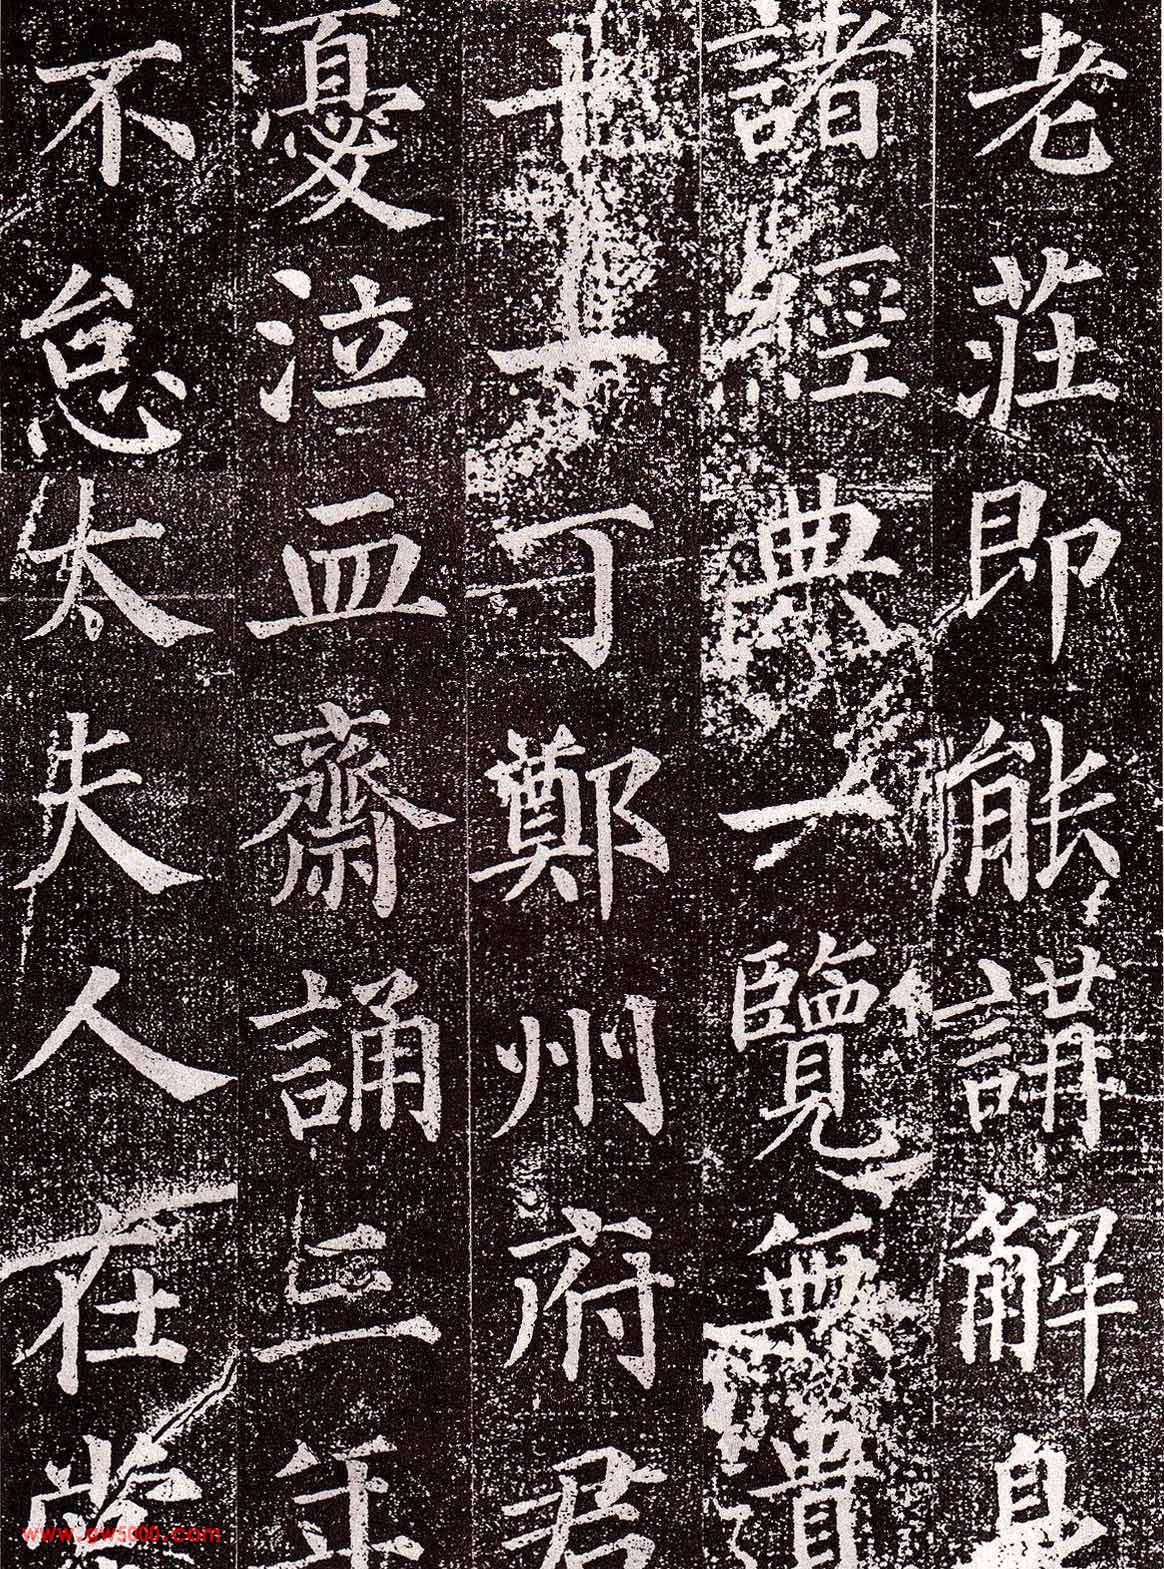 老莊即能講解
諸經典一覽無遺
十丁鄭州府君
憂泣血齋誦三年
不怠太夫人在堂
www.gw5000.com